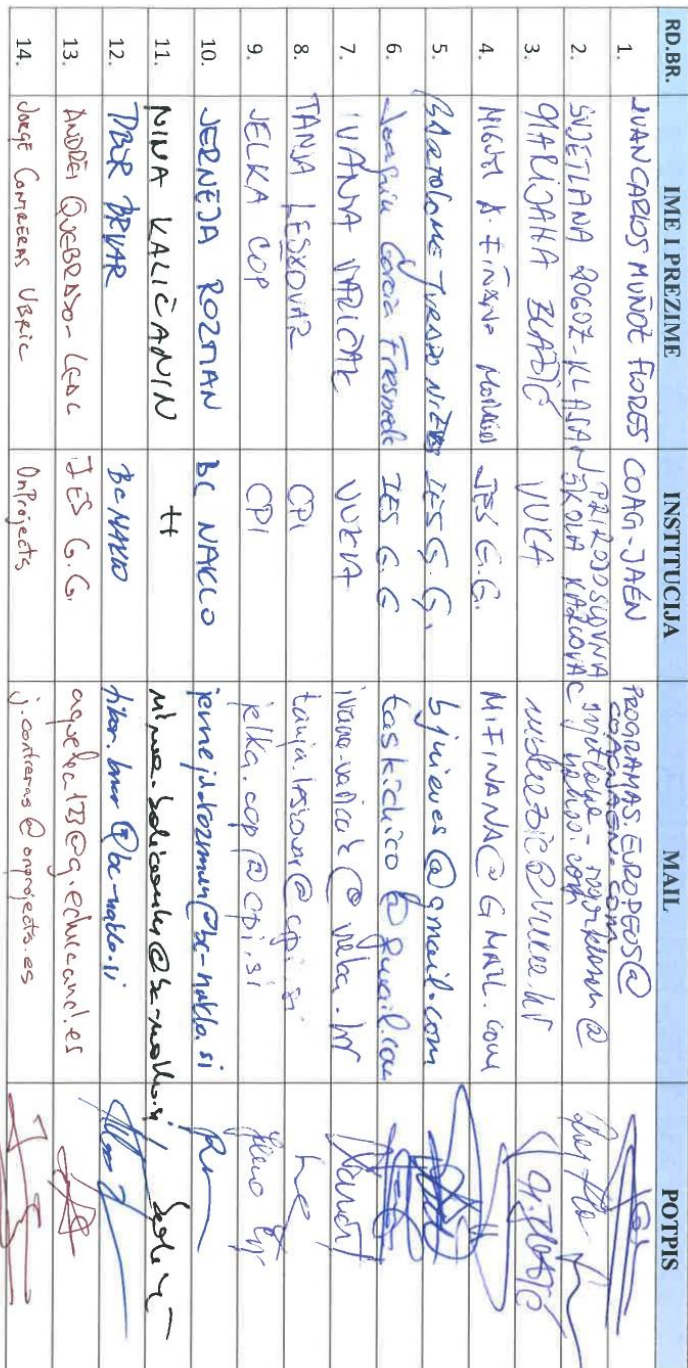 RD.BR. IME I PREZIME INSTITUCIJA MAIL POTPIS
1. JUAN CARLOS MUÑOZ FLORES COAG-JAÉN PROGRAMAS.EUROPEOS@
COAGJAEN.COM
2. SVJETLANA ROGOZ-KLASAN PRIRODOSLOVNA
ŠKOLA KARLOVAC
yahoo.com
3. MARIJANA BLAŽIĆ VUKA
4. MIGUEL A. FIÑANA IES G.G. MIFINANA@GMAIL.COM
5. BARTOLOME JURADO NIEVES IES G.G. bjnieves@gmail.com
6. Joaquin Garcia Fresneda IES G.G taskichico@gmail.com
7. IVANA VARIČAK VUKA ivana.varicak@vuka.hr
8. TANJA LESKOVAR CPI tanja.leskovar@cpi.si
9. JELKA ČOP CPI jelka.cop@cpi.si
10. JERNEJA ROZMAN BC NAKLO jerneja.rozman@bc-naklo.si
11. NINA KALIČANIN
12. BRVAR BC NAKLO tibor.brvar@bc-naklo.si
13. ANDRÉS QUEBRADO- IES G.G. aquelea123@g.educaand.es
14. JORGE CONTRERAS UBRIC OnProjects j.contreras@onprojects.es